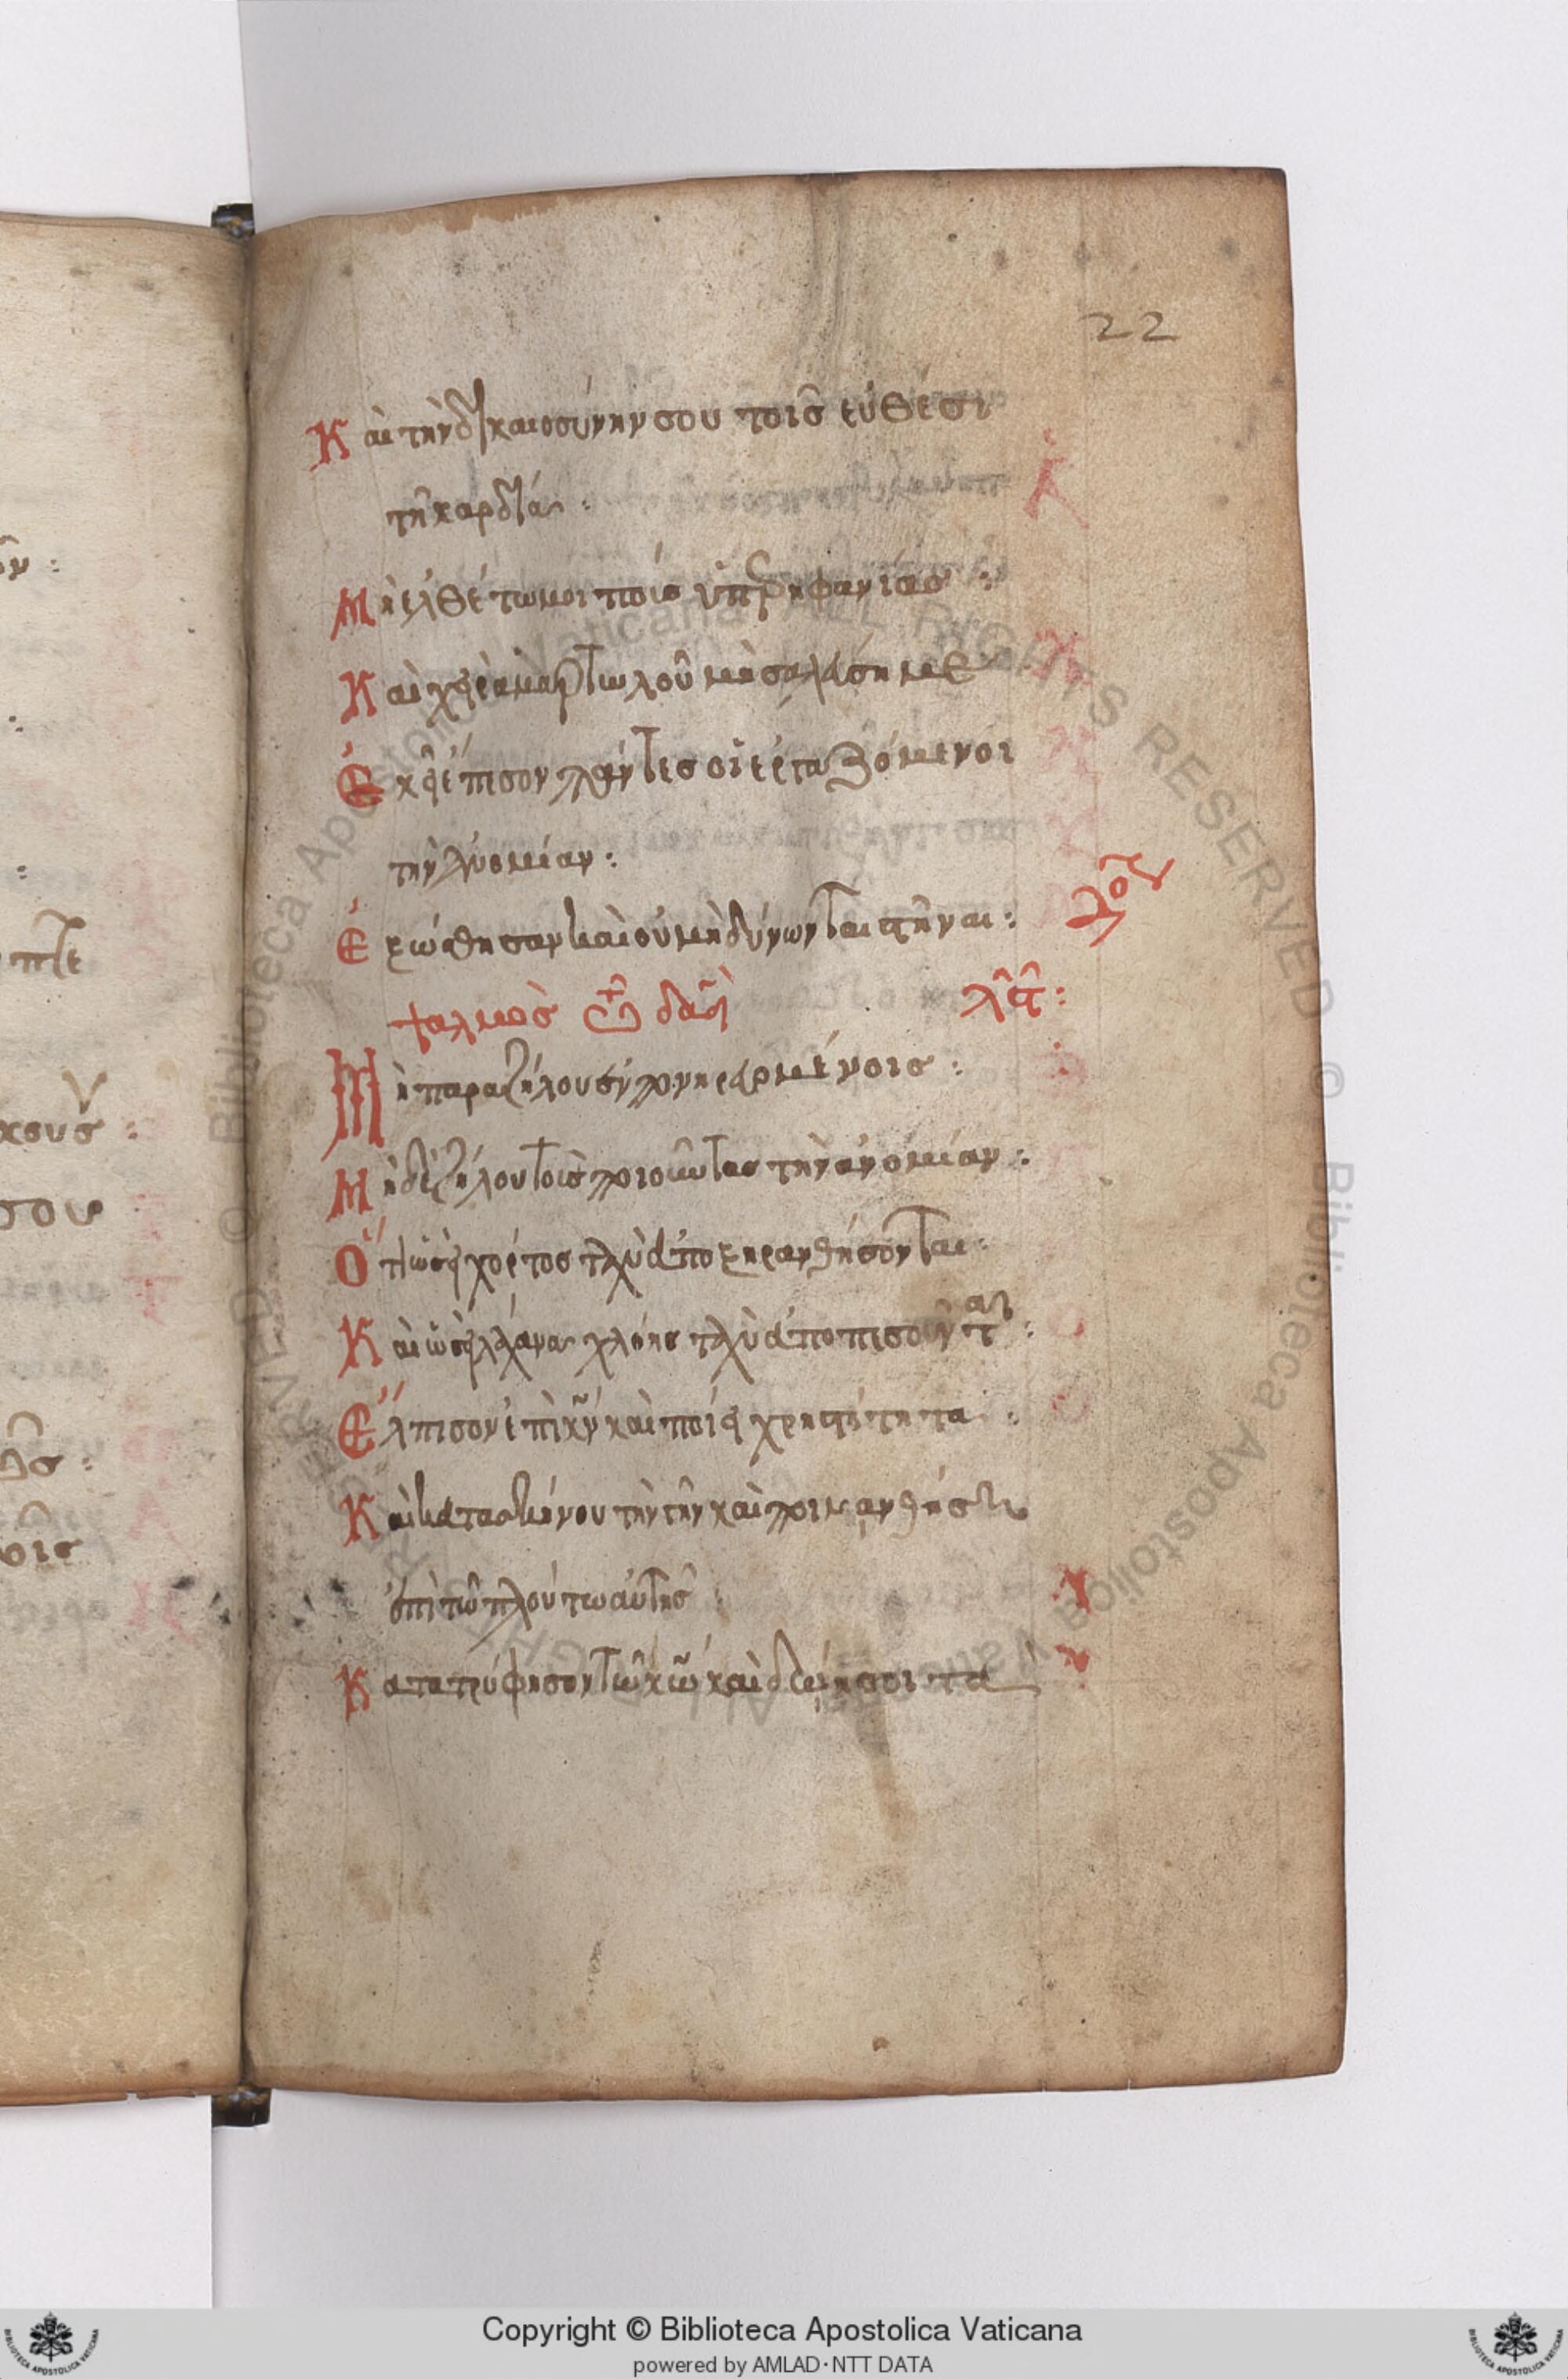 22
Καὶ τὴν δικαιοσύνην σου τοῖς εὐθέσι
τῆ καρδία :
Μὴ ἐλθέτω μοι ποὺς ὑπερηφανίας :
Καὶ χεὶρ ἁμαρτωλοῦ μὴ σαλεύση με
Ἐκεῖ ἔπεσον πάντες οἱ ἐργαζόμενοι
τὴν ἀνομίαν :
Ἐξώσθησαν καὶ οὐ μὴ δύνωνται στῆναι :
ψαλμὸς τῶ δαδ λς :
Μὴ παραζήλου ἐν πονηρευομένοις :
Μηδὲ ζήλου τοὺς ποιοῦντας τὴν ἀνομίαν :
Ὅτι ὡσεὶ χόρτος ταχὺ ἀποξηρανθήσονται :
Καὶ ὡσεὶ λάχανα χλόης ταχὺ ἀποπεσοῦνται :
Ἔλπισον ἐπὶ κν καὶ ποίει χρηστότητα :
Καὶ κατασκήνου τὴν γῆν καὶ ποιμανθήση
ἐπὶ τῶ πλούτω αὐτῆς
Κατατρύφησον τοῦ κυ καὶ δώσει σοι τὰ
Copyright © Biblioteca Apostolica Vaticana
powered by AMLAD·NTT DATA